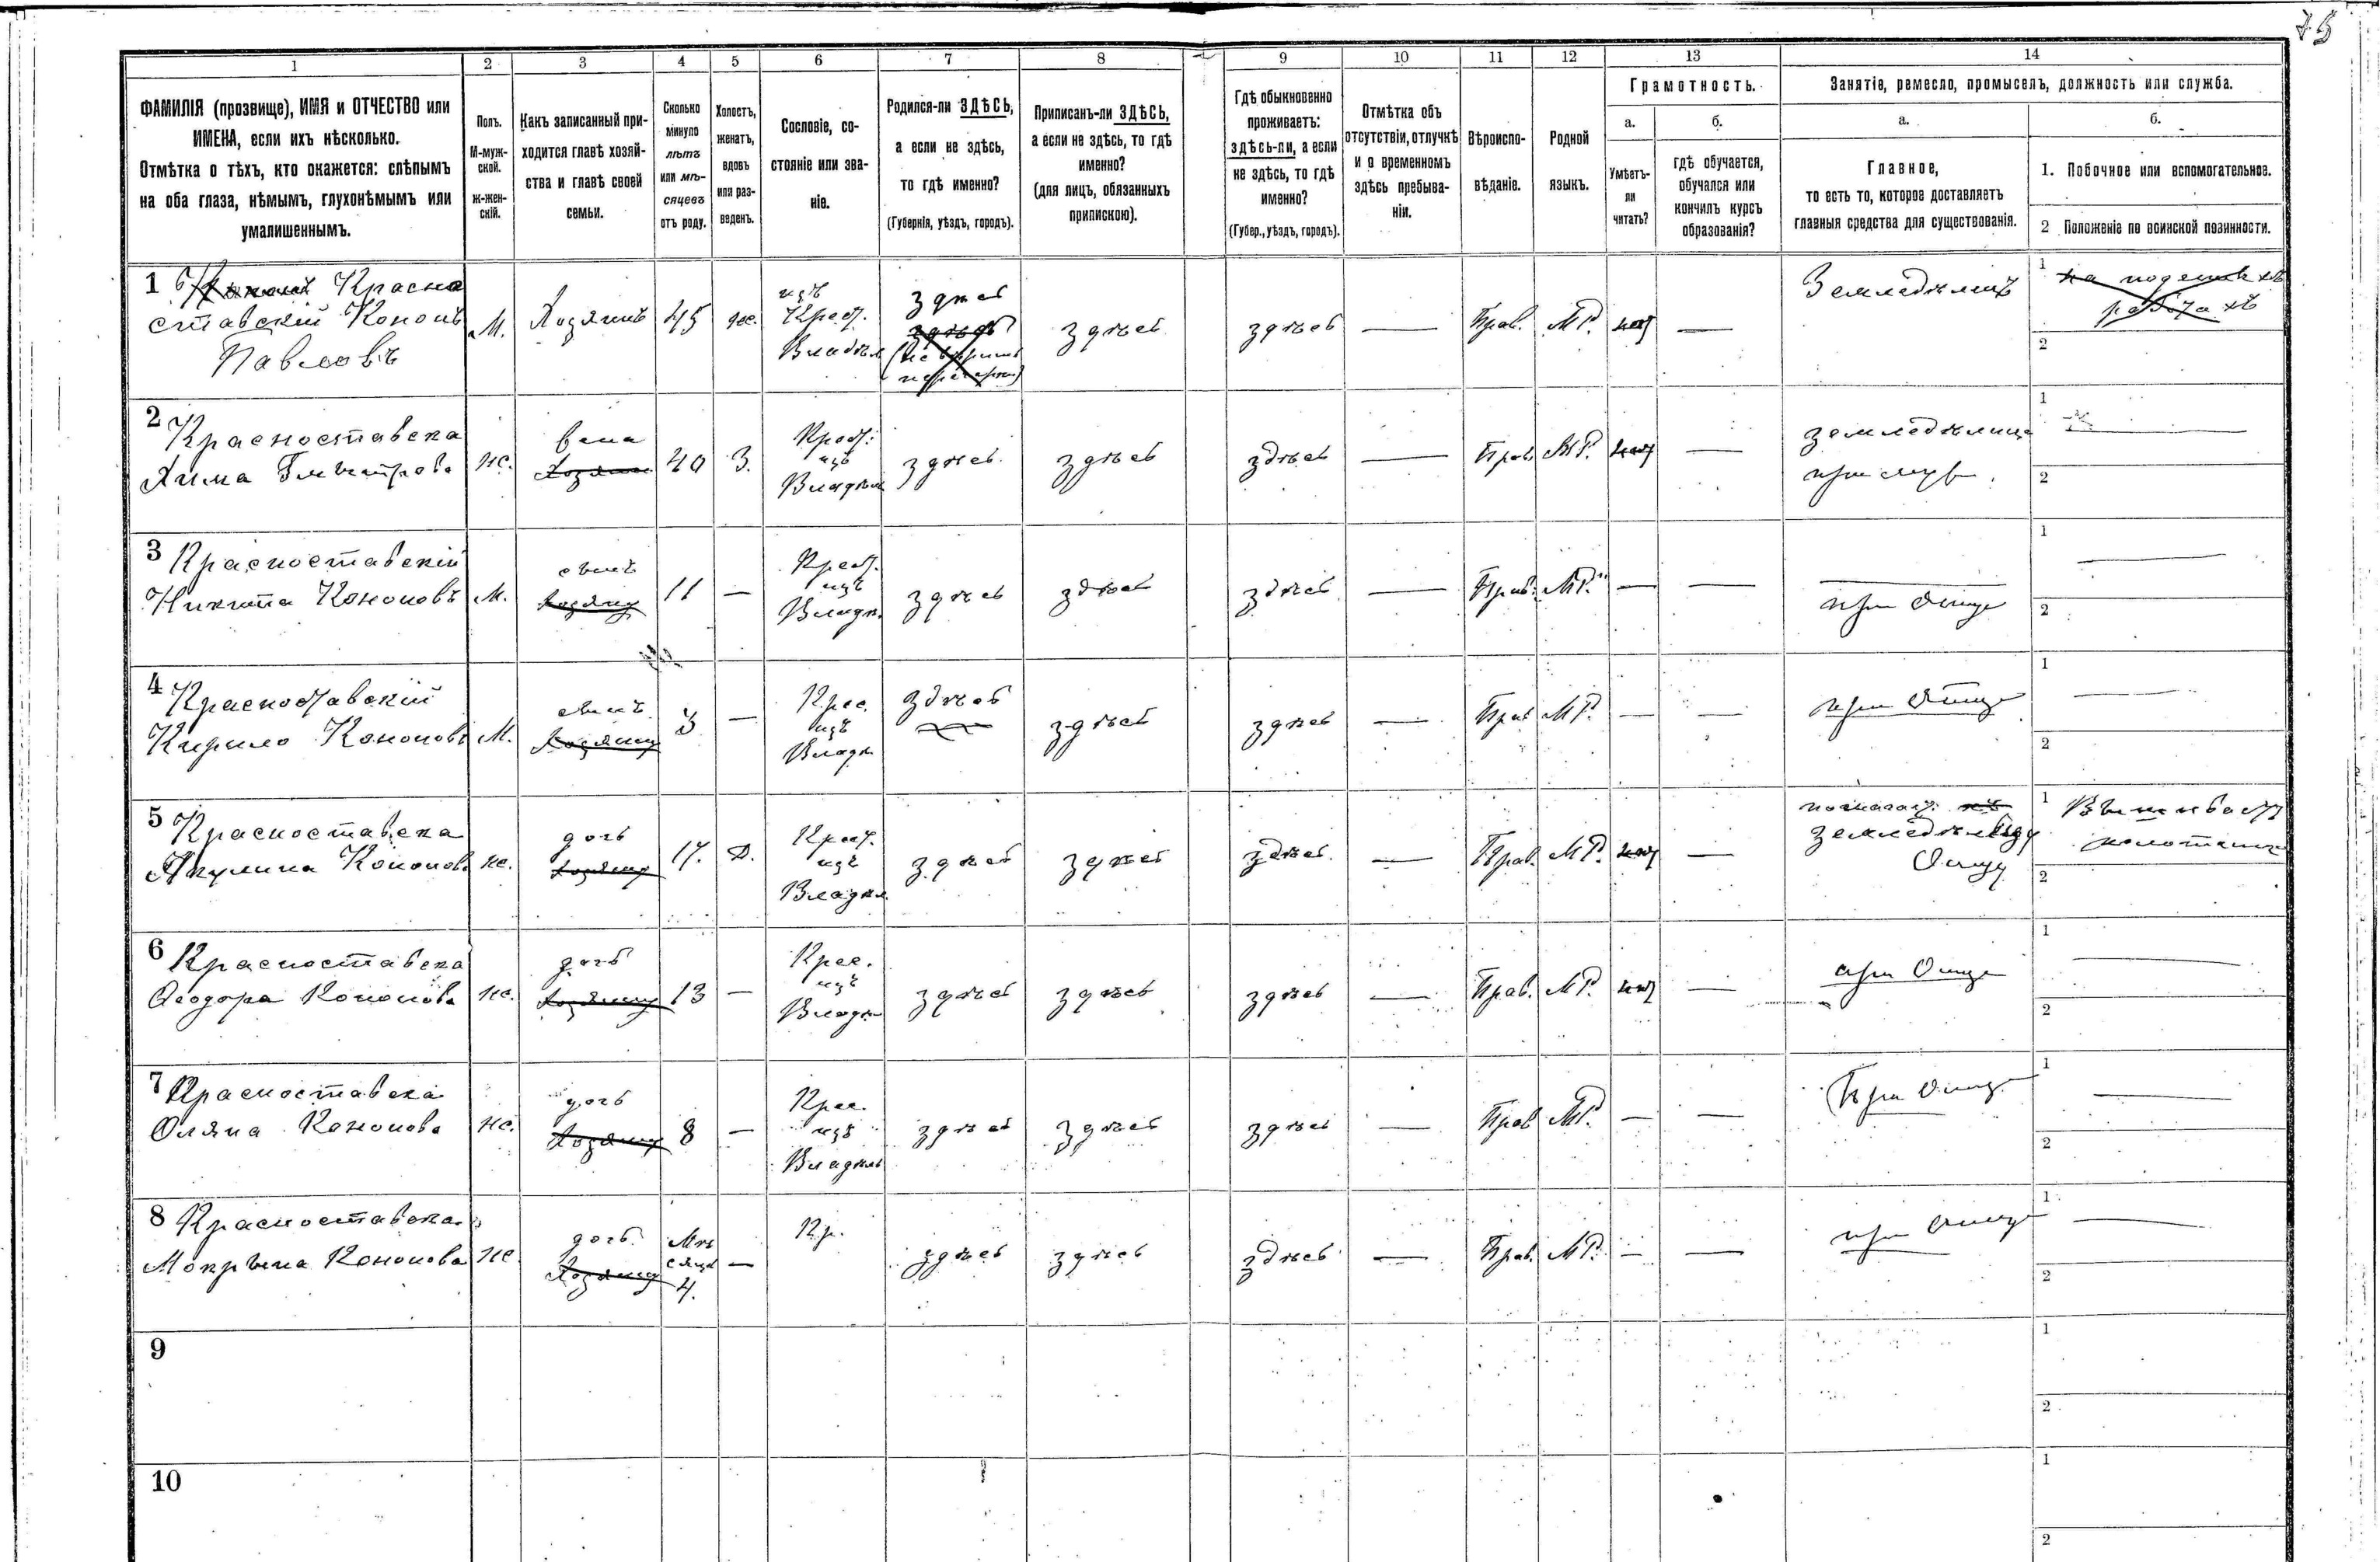 75
1 2 3 4 5 6 7 8 9 10 11 12 13 14
ФАМИЛІЯ (прозвище), ИМЯ и ОТЧЕСТВО или
ИМЕНА, если ихъ нѣсколько.
Отмѣтка о тѣхъ, кто окажется: слѣпымъ
на оба глаза, нѣмымъ, глухонѣмымъ или
умалишеннымъ.
Полъ.
М-муж-
ской.
ж-жен-
скій.
Какъ записанный при-
ходится главѣ хозяй-
ства и главѣ своей
семьи.
Сколько
минуло
лѣтъ
или мѣ-
сяцевъ
отъ роду.
Холостъ,
женатъ,
вдовъ
или раз-
веденъ.
Сословіе, со-
стояніе или зва-
ніе.
Родился-ли ЗДѢСЬ,
а если не здѣсь,
то гдѣ именно?
(Губернія, уѣздъ, городъ).
Приписанъ-ли ЗДѢСЬ,
а если не здѣсь, то гдѣ
именно?
(для лицъ, обязанныхъ
припискою).
Гдѣ обыкновенно
проживаетъ:
здѣсь-ли, а если
не здѣсь, то гдѣ
именно?
(Губер., уѣздъ, городъ).
Отмѣтка объ
отсутствіи, отлучкѣ
и о временномъ
здѣсь пребыва-
ніи.
Вѣроиспо-
вѣданіе.
Родной
языкъ.
Грамотность.
а.
Умѣетъ-
ли
читать?
б.
гдѣ обучается,
обучался или
кончилъ курсъ
образованія?
Занятіе, ремесло, промыселъ, должность или служба.
а.
Главное,
то есть то, которое доставляетъ
главныя средства для существованія.
б.
1. Побочное или вспомогательное.
2 Положеніе по воинской повинности.
1 Красно
ставскій Кононъ
Павловъ
М.
Хозяинъ
45
же.
Крест.
изъ
Владѣл
здѣсь
здѣсь
здѣсь
здѣсь
—
Прав.
М Р.
нѣт
—
Земледѣлецъ
1 на поденныхъ
работахъ
2
2 Красноставска
Хима Дмитрова
же.
жена
Хозяина
40
З.
Крест.
изъ
Владѣл
здѣсь
здѣсь
здѣсь
—
Прав.
М Р.
нѣт
—
земледѣлица
при мужѣ
1 —
2
3 Красноставскій
Никита Кононовъ
М.
сынъ
Хозяину
11
—
Крест.
изъ
Владѣ.
здѣсь
здѣсь
здѣсь
—
Прав.
М Р.
—
—
при Отцѣ
1 —
2
4 Красноставскій
Кирило Кононовъ
М.
сынъ
Хозяину
3
—
Крес.
изъ
Владѣ
здѣсь
здѣсь
здѣсь
—
Прав
М Р.
—
—
при Отцѣ
1 —
2
5 Красноставска
Акулина Кононова
же.
дочь
Хозяину
17.
Д.
Крест.
изъ
Владѣл
здѣсь
здѣсь
здѣсь.
—
Прав.
М Р.
нѣт
—
помогает.
земледѣльцу
Отцу
1 Вышивает
полотенца
2
6 Красноставска
Ѳеодора Кононова
же.
дочь
Хозяину
13
—
Крес.
изъ
Владѣ
здѣсь
здѣсь
здѣсь
—
Прав.
М Р.
нѣт
—
при Отцѣ
1 —
2
7 Красноставска
Оляна Кононова
же.
дочь
Хозяину
8
—
Крес.
изъ
Владѣль
здѣсь
здѣсь
здѣсь
—
Прав
М Р.
—
—
При Отцѣ
1 —
2
8 Красноставска
Мокрына Кононова
же
дочь.
Хозяину
Мѣ
сяцъ
4.
—
Кр.
здѣсь
здѣсь
здѣсь
—
Прав.
М Р.
—
—
при Отцѣ
1 —
2
9
1
2
10
1
2